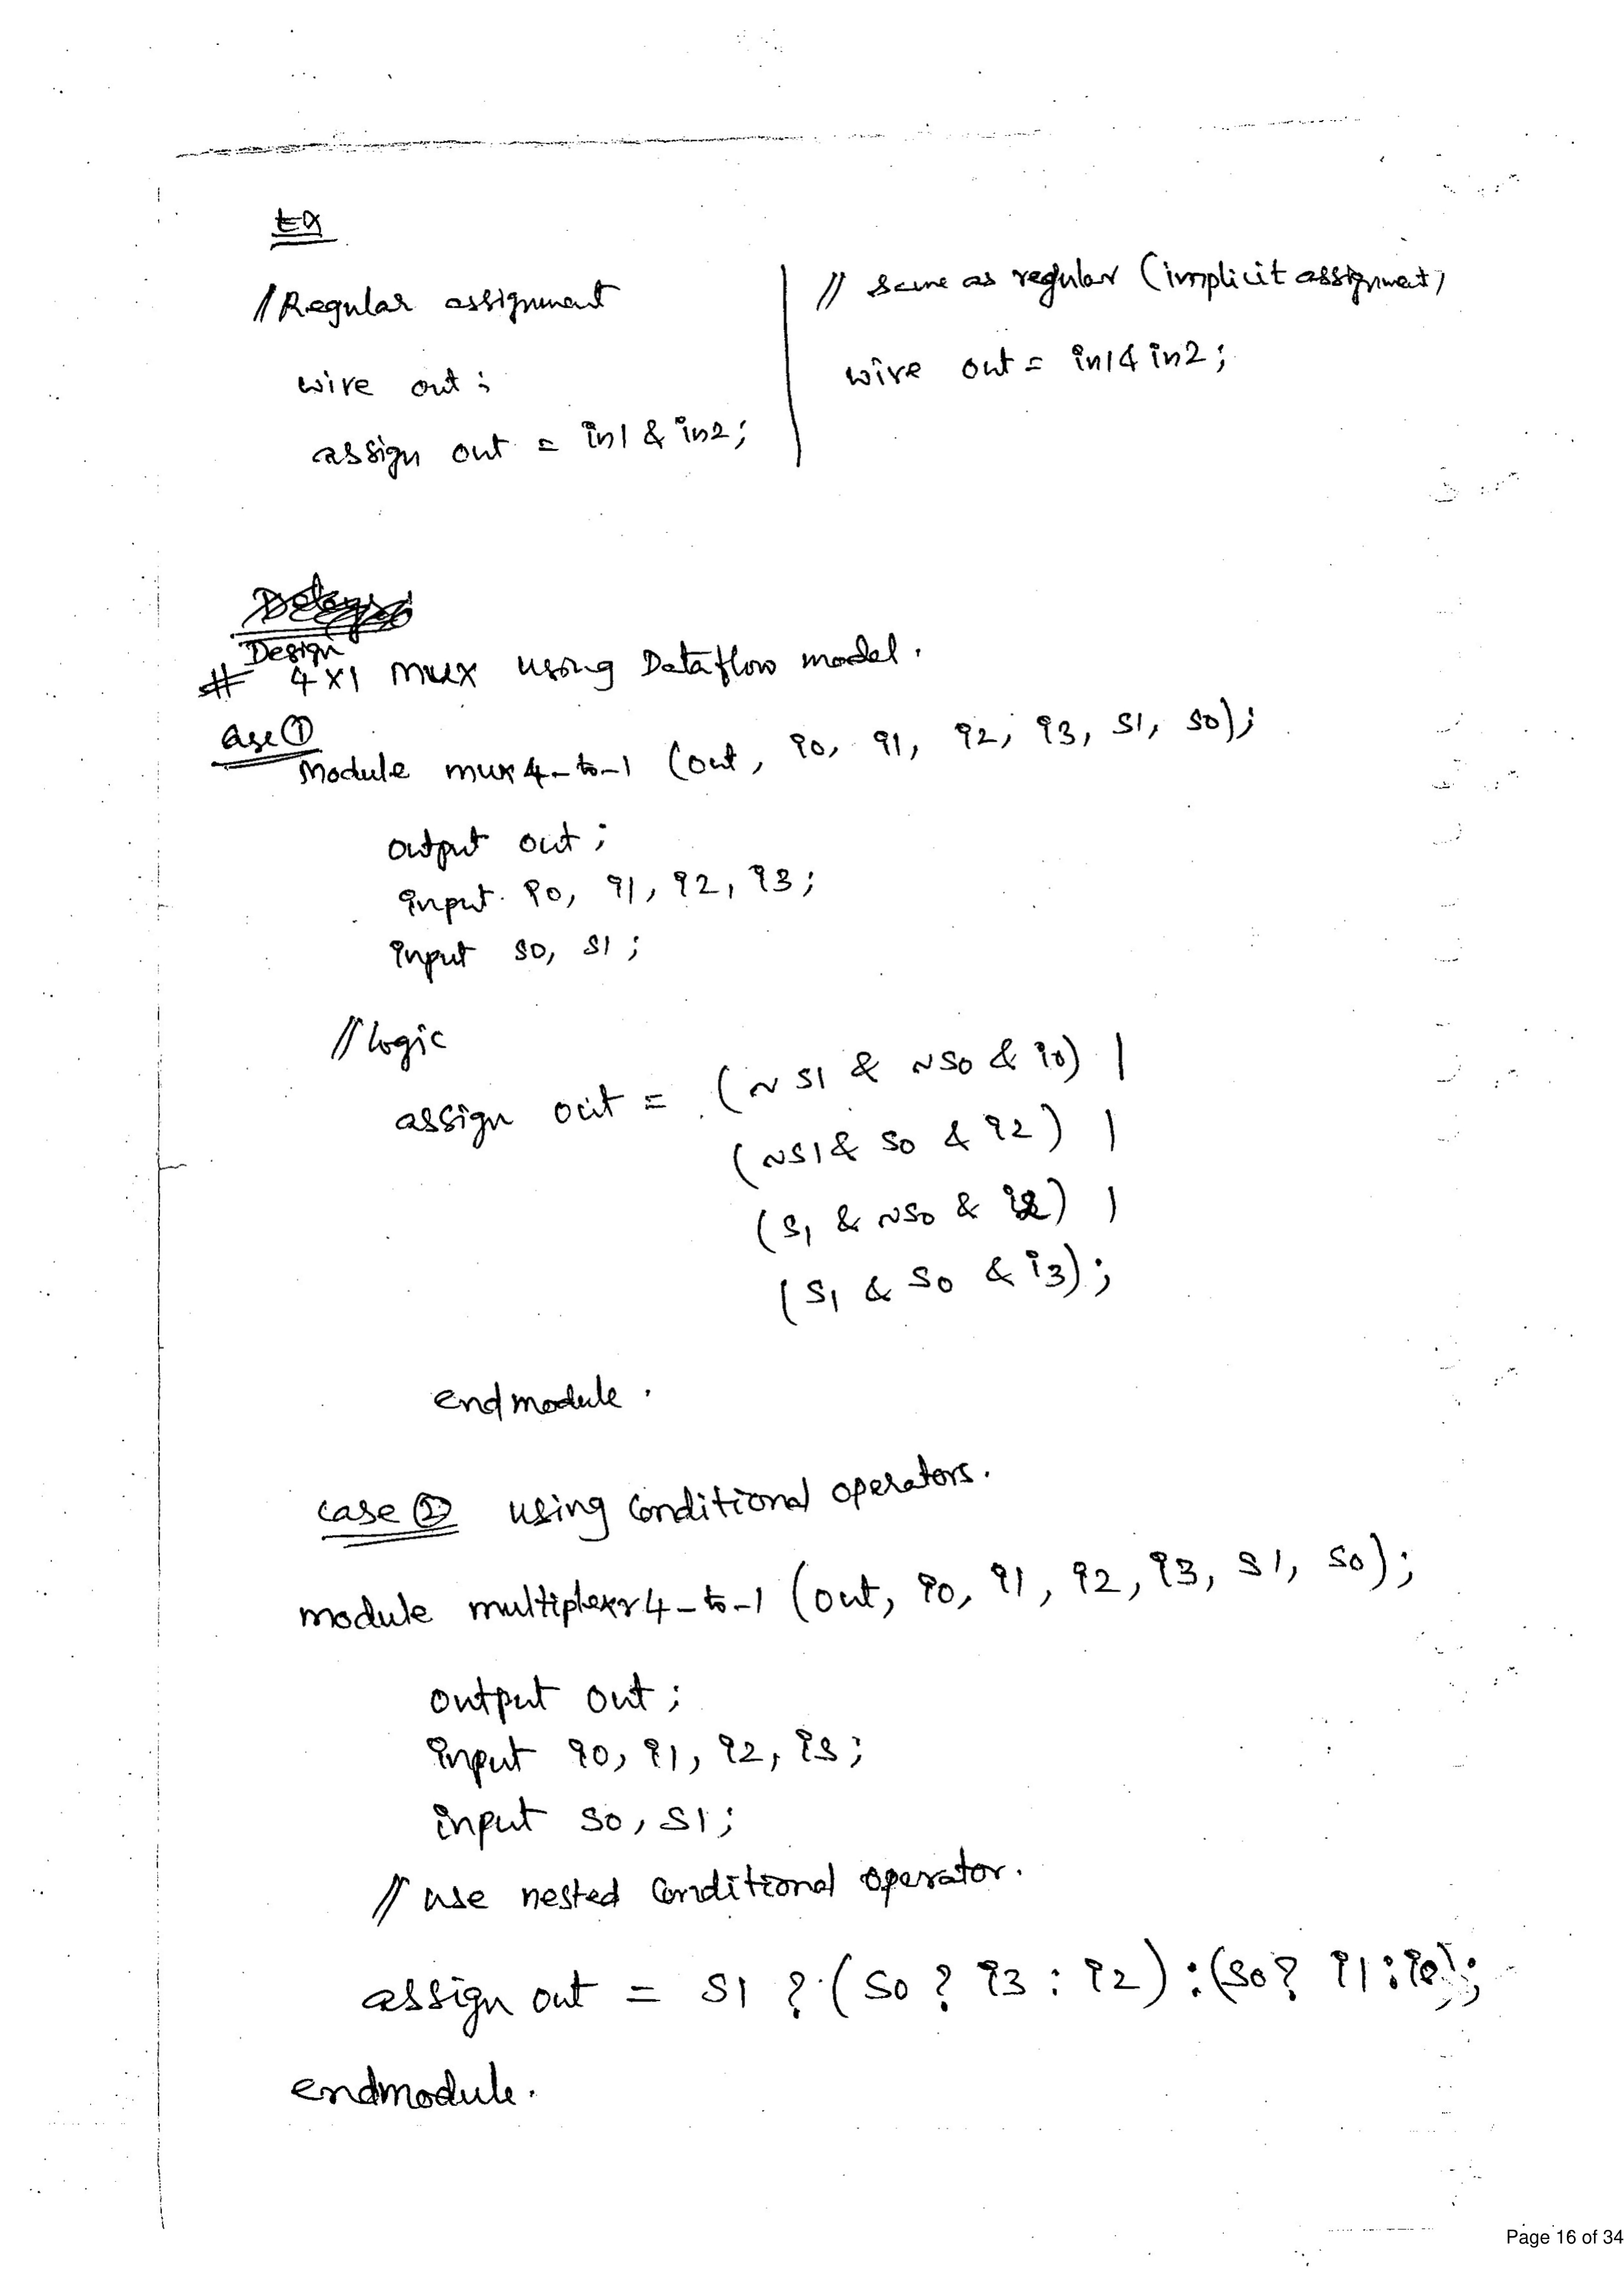 Ex
// Regular assignment
wire out ;
assign out = in1 & in2 ;
// Same as regular (implicit assignment)
wire out = in1 & in2 ;
Design
# 4x1 mux using Dataflow model .
Case ①
Module mux4-to-1 (out, i0, i1, i2, i3, s1, s0);
output out ;
input i0, i1, i2, i3 ;
input s0, s1 ;
// logic
assign out = (~s1 & ~s0 & i0) |
(~s1 & s0 & i2) |
(s1 & ~s0 & i2) |
(s1 & s0 & i3);
endmodule .
case ② using conditional operators.
module multiplexr4-to-1 (out, i0, i1, i2, i3, s1, s0);
output out ;
input i0, i1, i2, i3 ;
input s0, s1 ;
// use nested conditional operator.
assign out = s1 ? (s0 ? i3 : i2) : (s0 ? i1 : i0);
endmodule.
Page 16 of 34